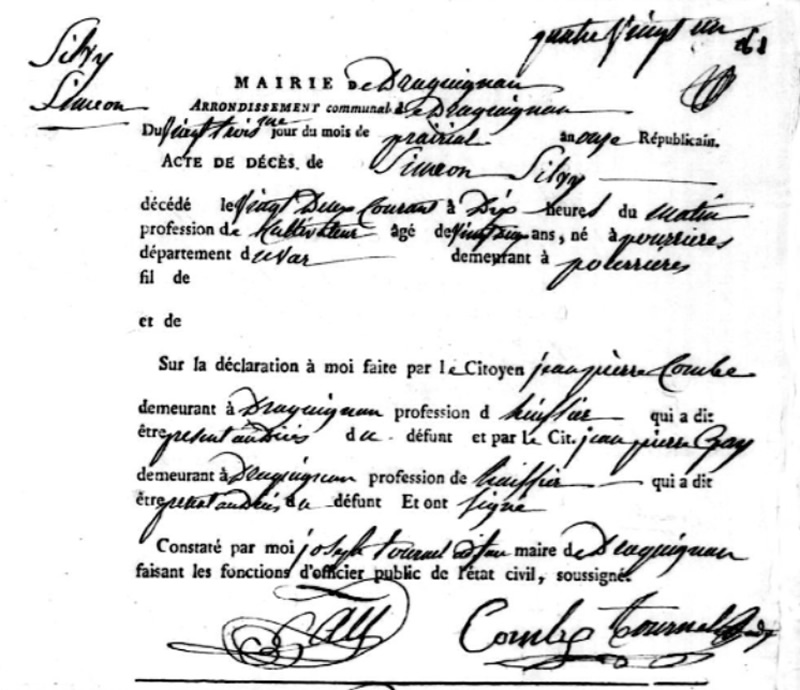 quatre vingt un
81
Silvy
Simeon
MAIRIE de Draguignan
ARRONDISSEMENT communal de Draguignan
Du vingt trois me jour du mois de prairial an onze Républicain.
ACTE DE DÉCÈS. de Simeon Silvy
décédé le vingt Deux Courant à Dix heures du matin
profession de Cultivateur âgé de vingt six ans, né à pourrières
département du var demeurant à pourrières
fil de
et de
Sur la déclaration à moi faite par le Citoyen jean pierre Combe
demeurant à Draguignan profession d huissier qui a dit
être present au décès du défunt et par le Cit. jean pierre Gay
demeurant à Draguignan profession de huissier qui a dit
être present au décès du défunt Et ont signé
Constaté par moi joseph tournel adjoint au maire de Draguignan
faisant les fonctions d'officier public de l'état civil, soussigné.
Combe Tournel